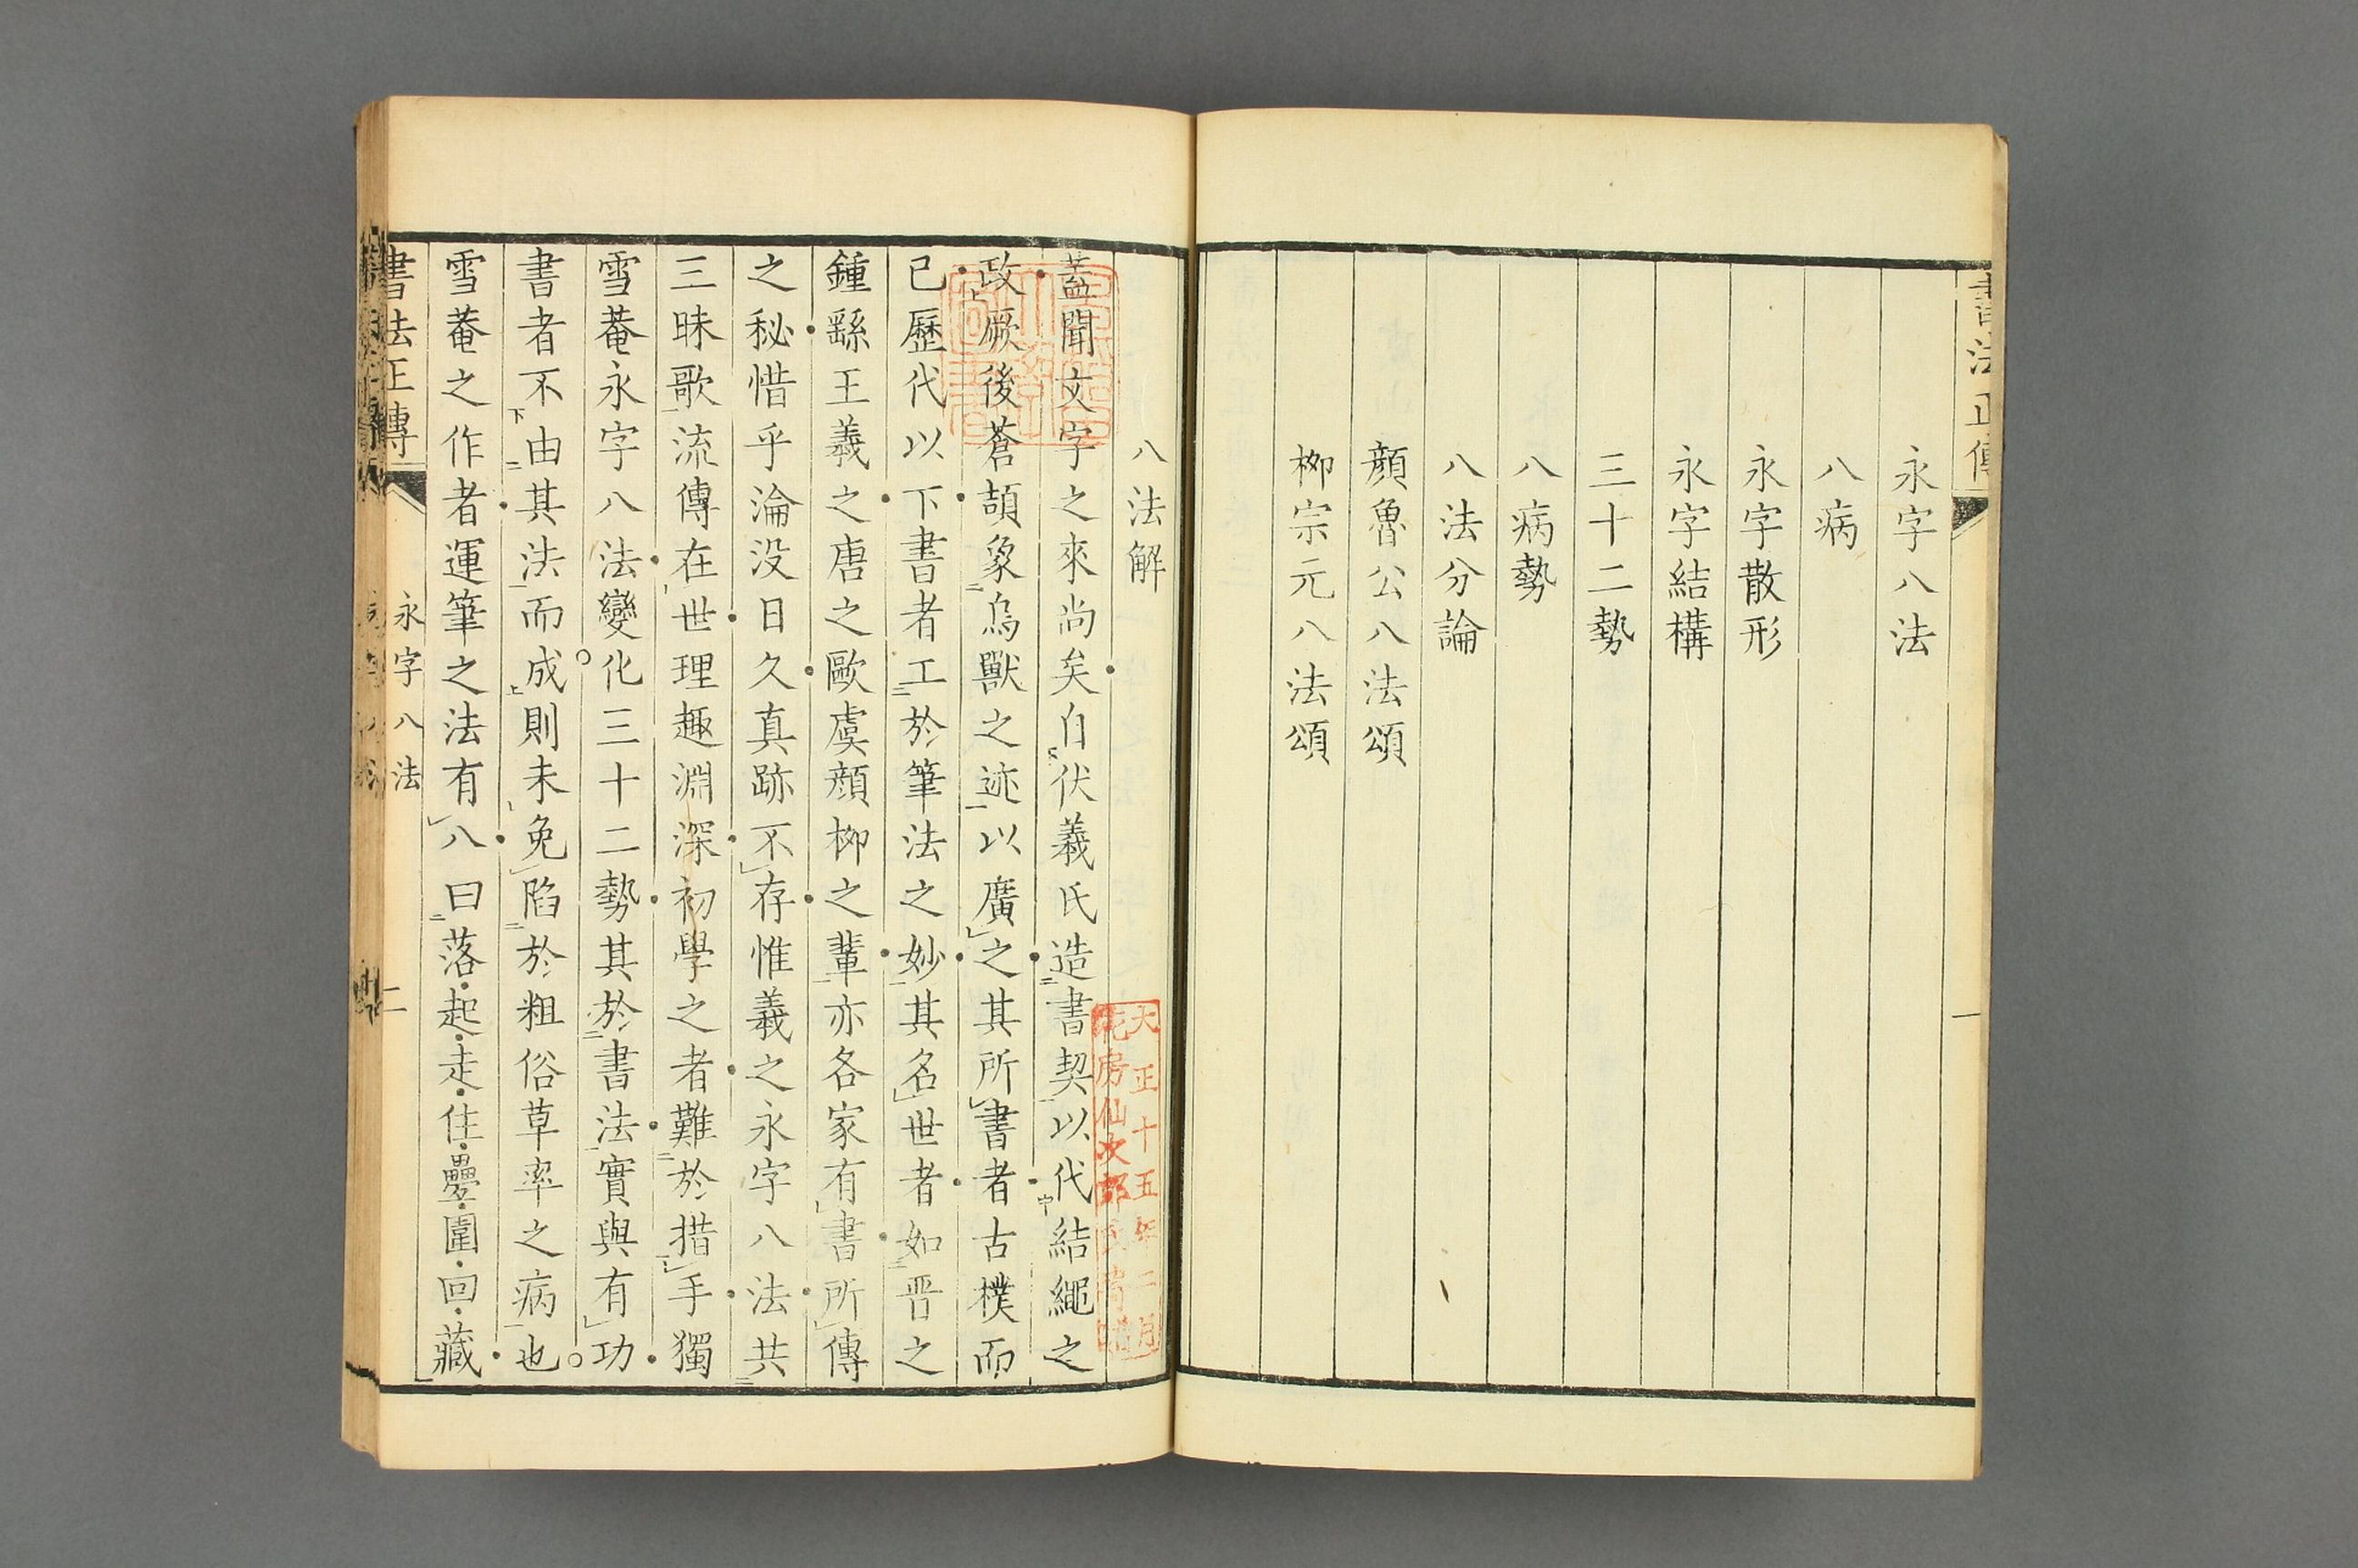 書法正傳
一
永字八法
八病
永字散形
永字結構
三十二勢
八病勢
八法分論
顔魯公八法頌
柳宗元八法頌
八法解
蓋聞文字之來尚矣自伏羲氏造書契以代結繩之
政厥後蒼頡象鳥獸之迹以廣之其所書者古樸而
已歷代以下書者工於筆法之妙其名世者如晋之
鍾繇王羲之唐之歐虞顔柳之輩亦各家有書所傳
之秘惜乎淪没日久真跡不存惟羲之永字八法共
三昧歌流傳在世理趣淵深初學之者難於措手獨
雪菴永字八法變化三十二勢其於書法實與有功
書者不由其法而成則未免陷於粗俗草率之病也
雪菴之作者運筆之法有八曰落起走住疊圍回藏
書法正傳
永字八法
二
大正十五年二月
花房仙次郎氏寄贈